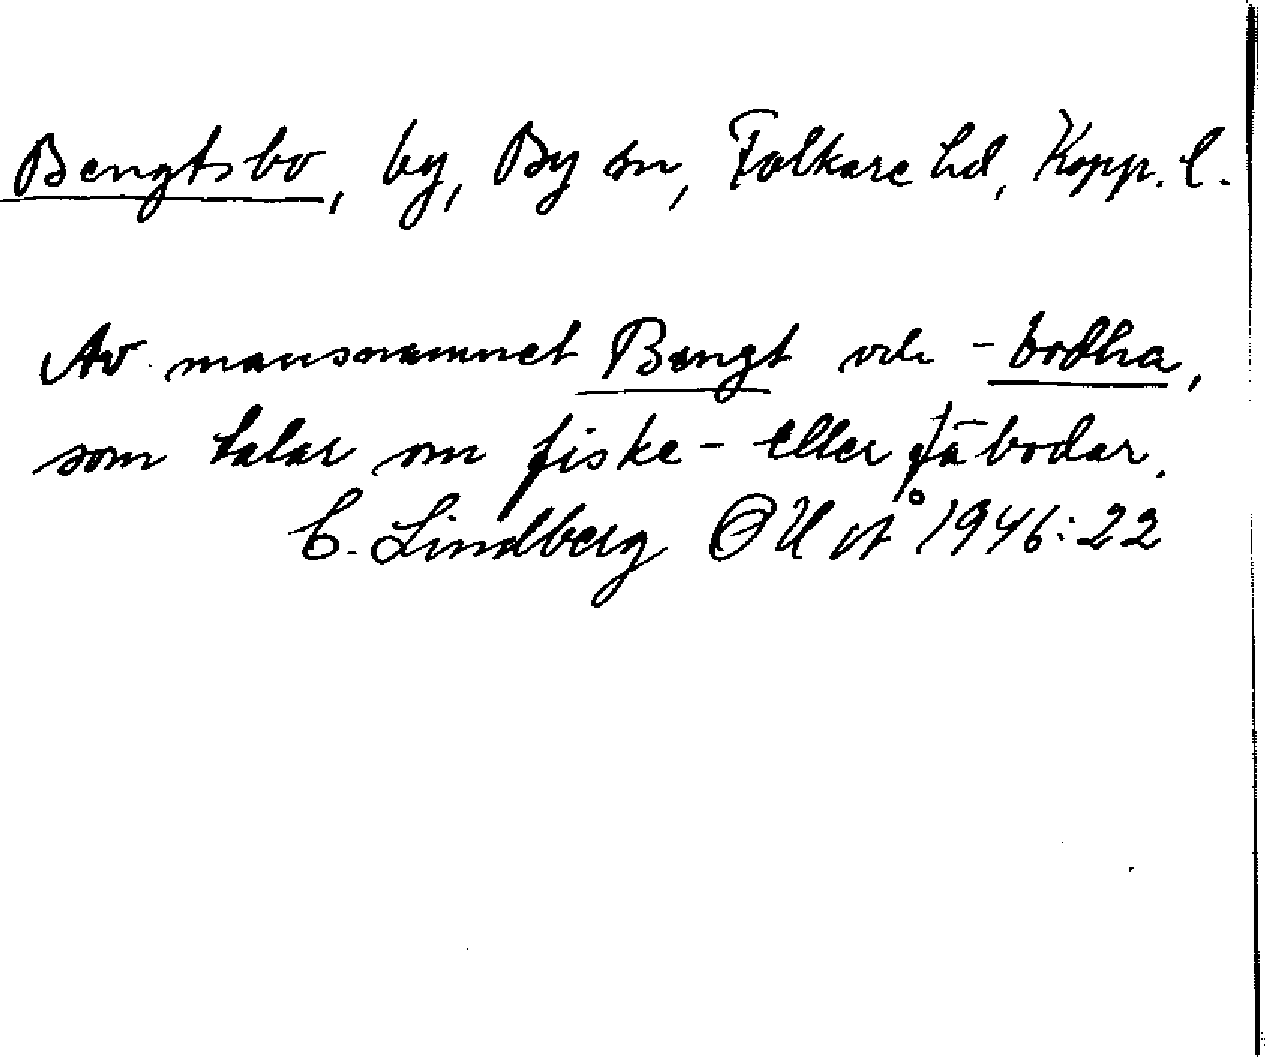 Bengtsbo, by, By sn, Folkare hd, Kopp. l.
Av mansnamnet Bengt och -bodha,
som talar om fiske- eller fäbodar.
C. Lindberg 1946:22